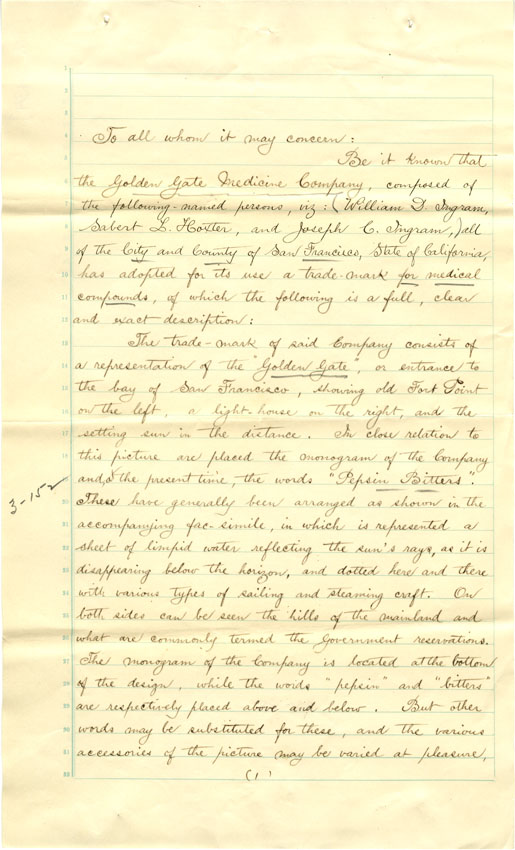 To all whom it may concern:
Be it known that
the Golden Gate Medicine Company, composed of
the following-named persons, viz: (William D. Ingram,
Sabert L. and Joseph C. Ingram,) all
of the City and County of San Francisco, State of California,
has adopted for its use a trade-mark for medical
compounds, of which the following is a full, clear
and exact description:
The trade-mark of said Company consists of
a representation of the "Golden Gate", or entrance to
the bay of San Francisco, showing old Fort Point
on the left, a light-house on the right, and the
setting sun in the distance. In close relation to
this picture are placed the monogram of the Company
and, the present time, the words "Pepsin Bitters".
3-152
These have generally been arranged as shown in the
accompanying fac-simile, in which is represented a
sheet of limpid water reflecting the sun's rays, as it is
disappearing below the horizon, and dotted here and there
with various types of sailing and steaming craft. On
both sides can be seen the hills of the mainland and
what are commonly termed the Government reservations.
The monogram of the Company is located at the bottom
of the design, while the words "pepsin" and "bitters"
are respectively placed above and below. But other
words may be substituted for these, and the various
accessories of the picture may be varied at pleasure,
(1)